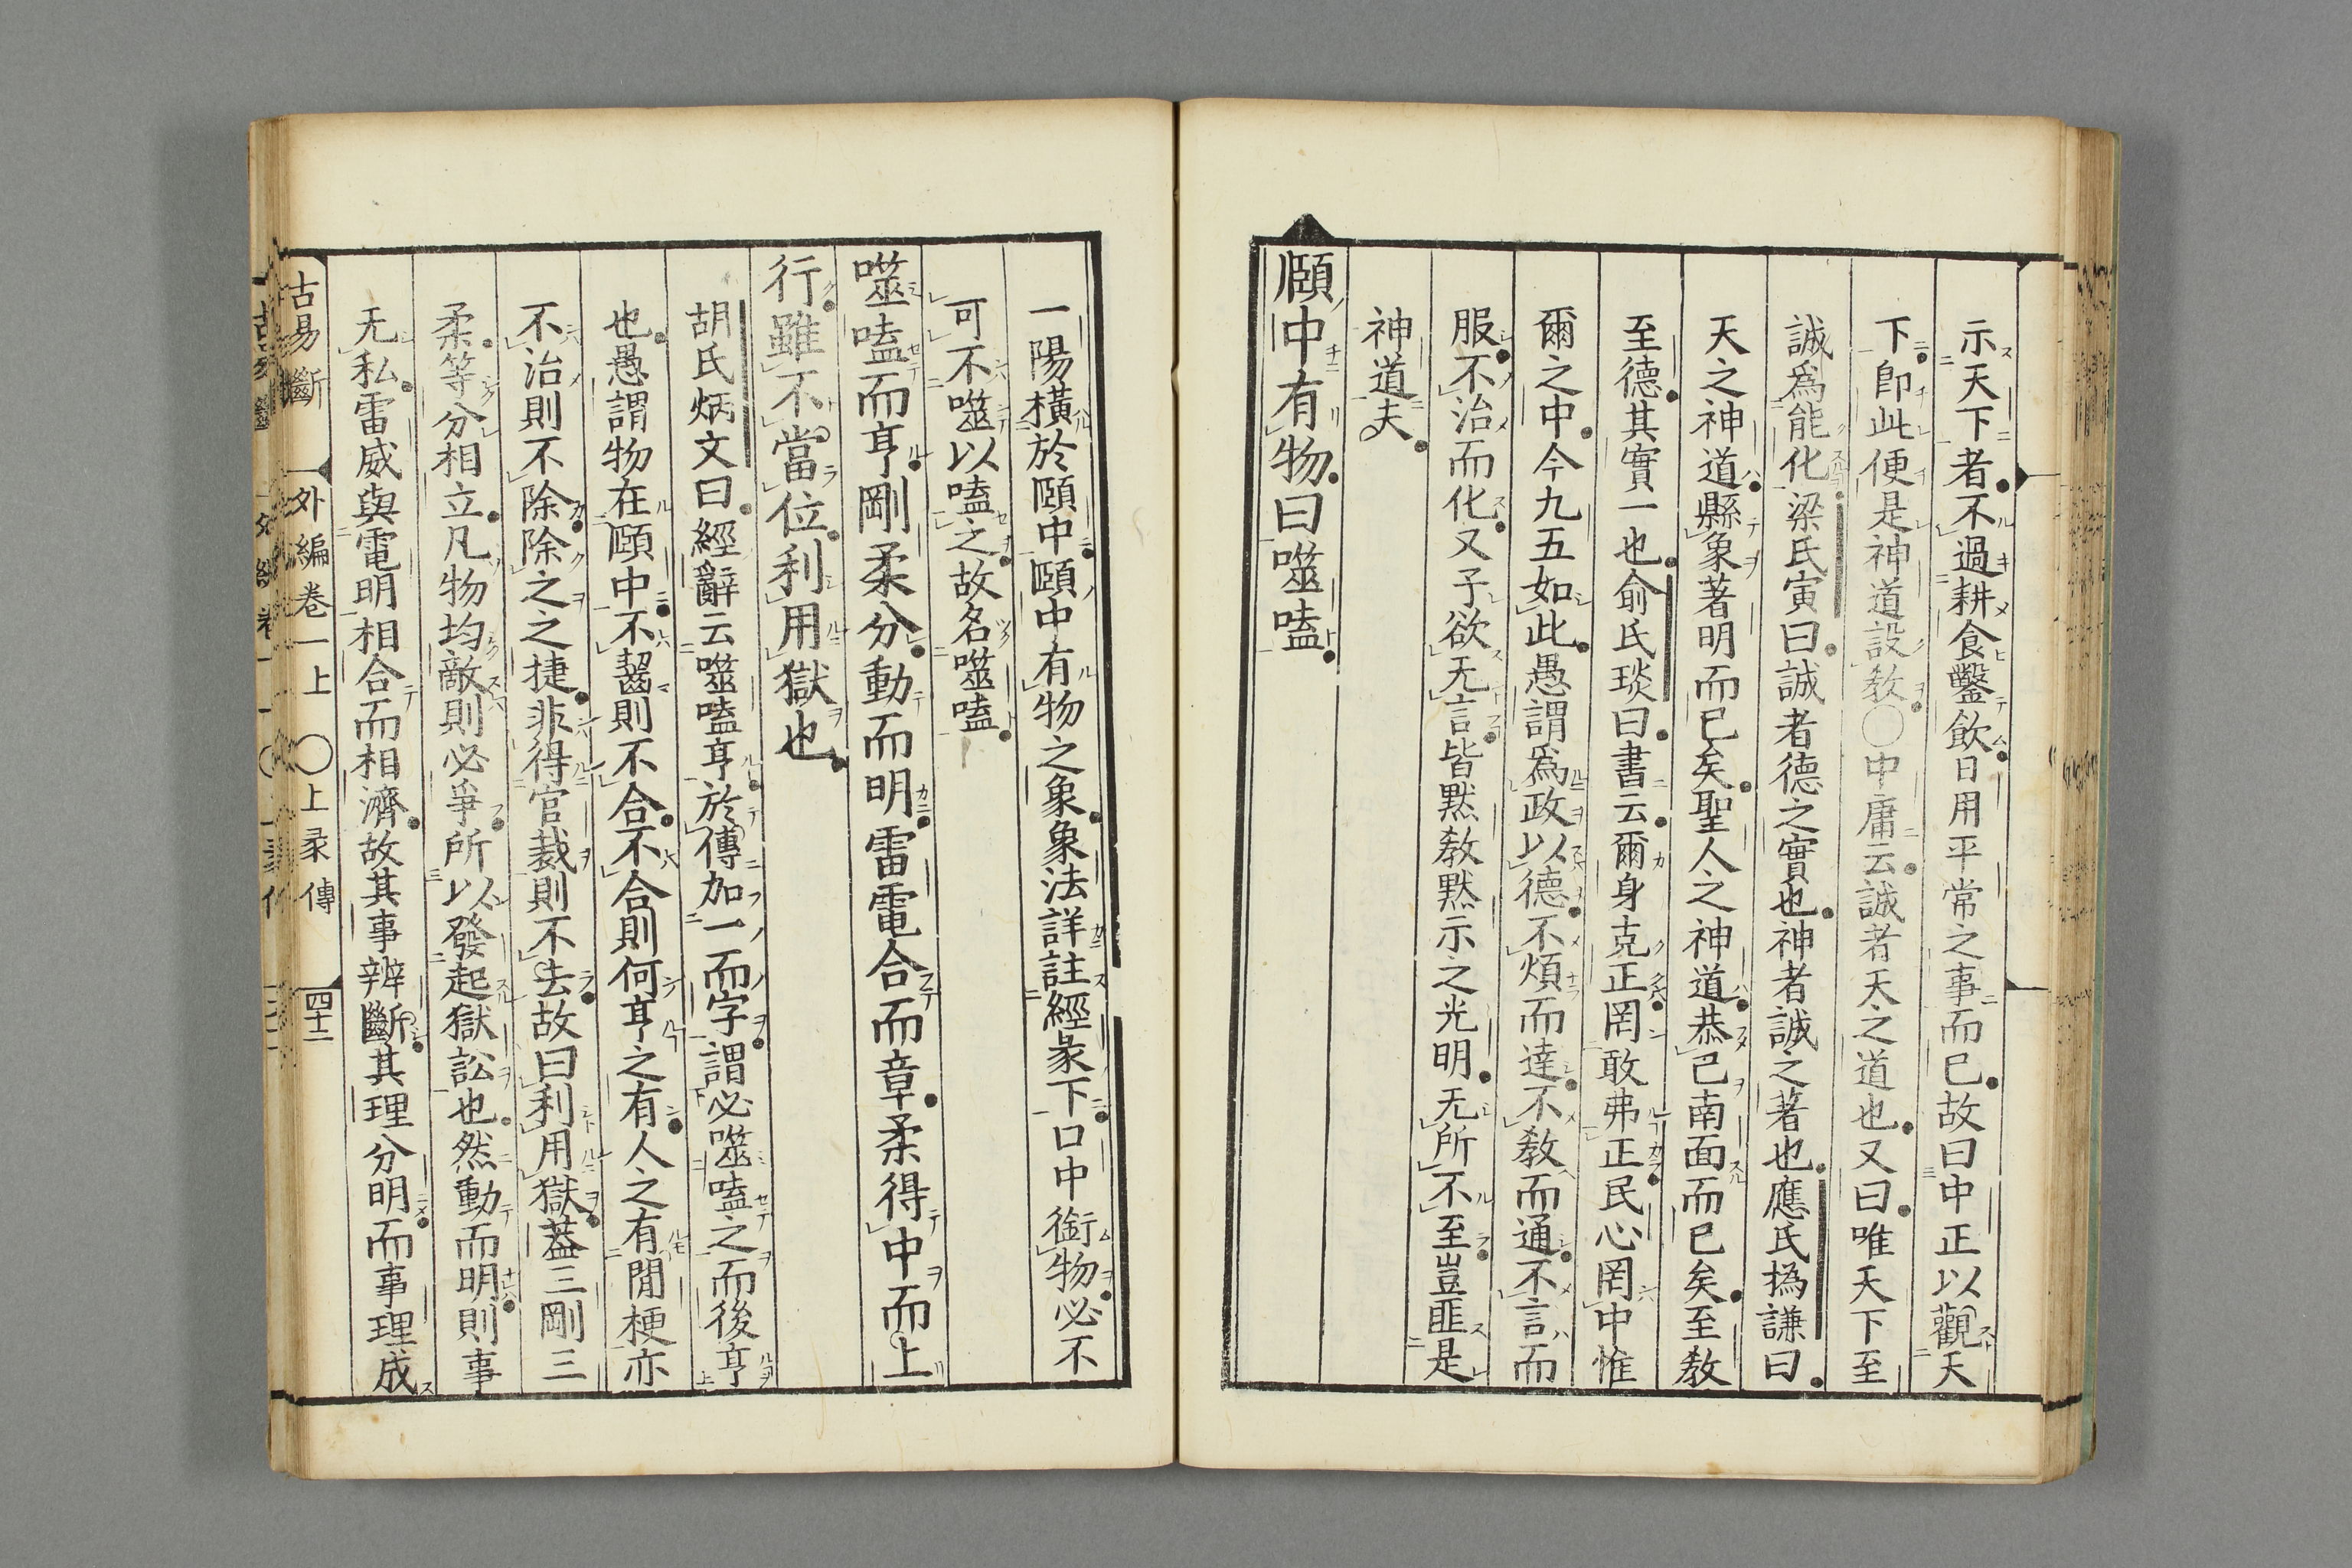 示天下者不過耕食鑿飮日用平常之事而已故曰中正以觀天
下卽此便是神道設敎〇中庸云誠者天之道也又曰唯天下至
誠爲能化梁氏寅曰誠者德之實也神者誠之著也應氏撝謙曰
天之神道縣象著明而已矣聖人之神道恭己南面而已矣至敎
至德其實一也俞氏琰曰書云爾身克正罔敢弗正民心罔中惟
爾之中今九五如此愚謂爲政以德不煩而達不敎而通不言而
服不治而化又子欲无言皆黙敎黙示之光明无所不至豈匪是
神道夫
頤中有物曰噬嗑
一陽橫於頤中頤中有物之象象法詳註經彖下口中銜物必不
可不噬以嗑之故名噬嗑
噬嗑而亨剛柔分動而明雷電合而章柔得中而上
行雖不當位利用獄也
胡氏炳文曰經辭云噬嗑亨於傳加一而字謂必噬嗑之而後亨
也愚謂物在頤中不齧則不合不合則何亨之有人之有閒梗亦
不治則不除除之之捷非得官裁則不去故曰利用獄葢三剛三
柔等分相立凡物均敵則必爭所以發起獄訟也然動而明則事
无私雷威與電明相合而相濟故其事辨斷其理分明而事理成
古易斷 外編卷一上 〇上彖傳 四十二